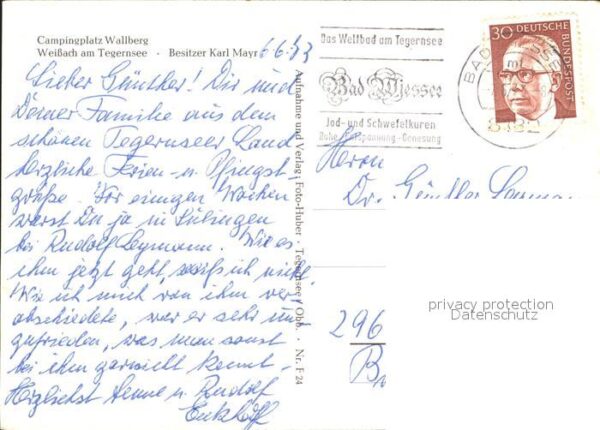 Campingplatz Wallberg
Weißach am Tegernsee - Besitzer Karl Mayr
6.6.73
Lieber Günther! Dir und
Deiner Familie aus dem
schönen Tegernseer Land
herzliche Ferien- u. Pfingst-
grüße. Vor einigen Wochen
warst Du ja in
bei Rudolf Leymann. Wie es
ihm jetzt geht, weiß ich nicht.
Wie ich mich von ihm ver-
abschiedete, war er sehr un-
zufrieden, was man sonst
bei ihm garnicht kennt.
Herzlichst Hanne u. Rudolf
Aufnahme und Verlag: Foto-Huber · Tegernsee / Obb. · Nr. F 24
Das Weltbad am Tegernsee
Bad Wiessee
Jod- und Schwefelkuren
Ruhe-Entspannung-Genesung
30 DEUTSCHE BUNDESPOST
BAD WIESSEE
8182
Herrn
Dr. Günther
296
privacy protection
Datenschutz